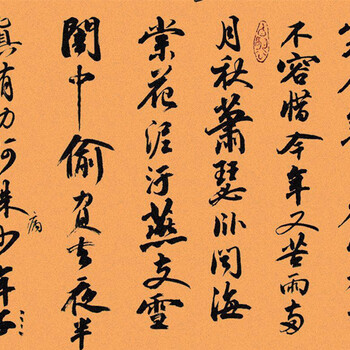 不容惜今年又苦雨兩
月秋蕭瑟卧聞海
棠花泥汙燕支雪
闇中偷負去夜半
真有力何殊少年子
病